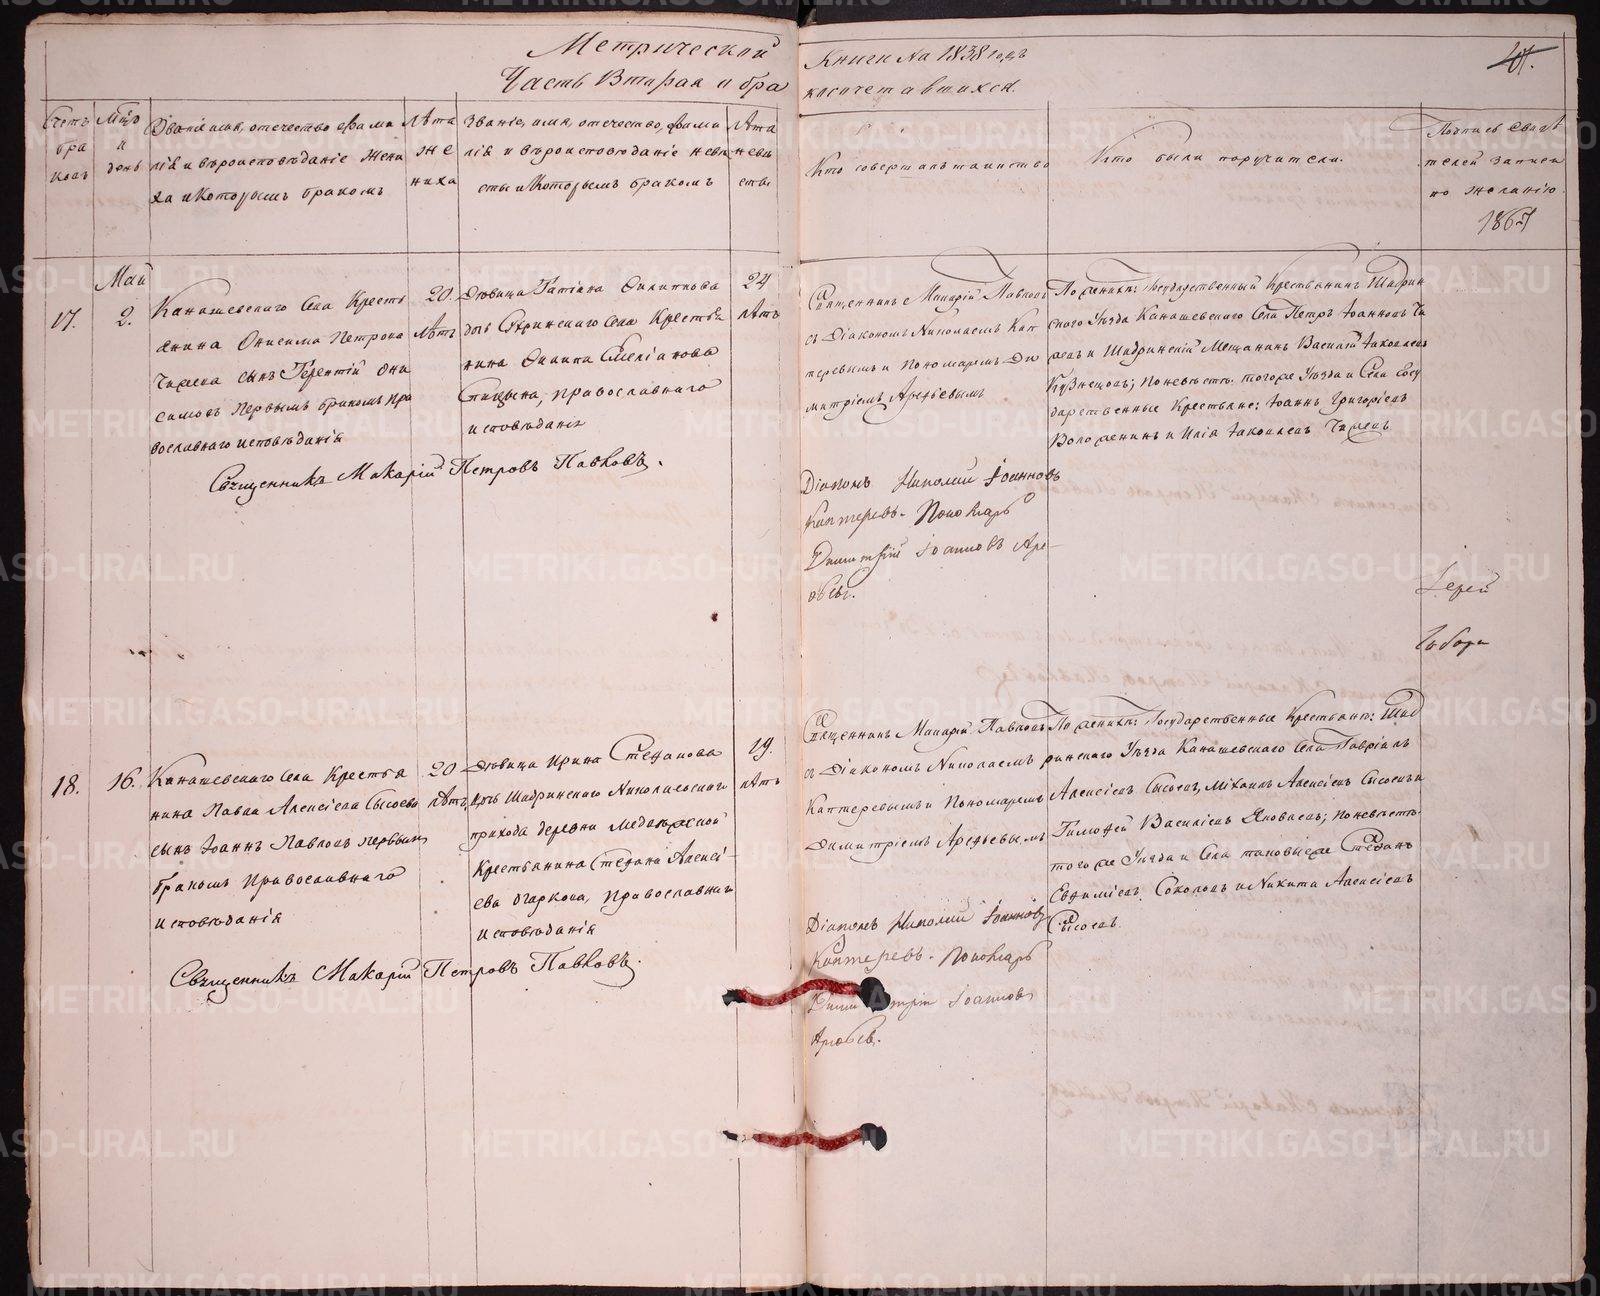 Метрической
Часть Вторая о бра
Книги на 1838 годъ
косочетавшихся.
Счетъ
бра
ковъ
Мѣс
и
день
Званіе имя, отечество фами
лія и вѣроисповѣданіе жени
ха и Которымъ бракомъ
Лѣта
же
ниха
Званіе, имя, отечество, фами
лія и вѣроисповѣданіе невѣ
сты и Которымъ бракомъ
Лѣта
невѣ
сты
Кто совершалъ таинство
Кто были поручители.
Подпись свидѣ
телей записи
по желанію
17.
Май
2.
Канашевскаго Села Кресть
янина Онисима Петрова
сынъ Терентій Они
симовъ первымъ бракомъ пра
вославнаго исповѣданія
20.
лѣтъ
Дѣвица Татіана Филиппова
дочь Села Крестья
нина Филипа Емеліанова
Спицына, православнаго
исповѣданія
24
лѣтъ
Священникъ Макарій Петровъ Павловъ.
Священникъ Макарій Павловъ
съ Діакономъ Николаемъ Кап
теревымъ и Пономаремъ Ди
митріемъ Арефьевымъ
Діаконъ Николай Іоанновъ
Каптеревъ. Пономарь
Димитрій Іоанновъ Аре-
фьевъ.
По женихѣ: Государственный Крестьянинъ Шадрин
скаго Уѣзда Канашевскаго Села Петръ Іоанновъ
и Шадринскій Мещанинъ Василій Іаковлевъ
Кузнецовъ; по невѣстѣ: того же Уѣзда и Села Госу
дарственные Крестьяне: Іоаннъ Григоріевъ
и Илія Іаковлевъ
Іерей
18.
16.
Канашевскаго Села Крестья
нина Павла Алексіева Сысоева
сынъ Іоаннъ Павловъ первымъ
бракомъ Православнаго
исповѣданія
20
лѣтъ
Дѣвица Ирина Стефанова
дочь Шадринскаго Николаевскаго
прихода деревни
Крестьянина Стефана Алексі-
ева Ожаркова, Православнаго
исповѣданія
19.
лѣтъ
Священникъ Макарій Петровъ Павловъ.
Священникъ Макарій Павловъ
съ Діакономъ Николаемъ
Каптеревымъ и Пономаремъ
Димитріемъ Арефьевымъ
Діаконъ Николай Іоанновъ
Каптеревъ. Пономарь
Димитрій Іоанновъ
Арефьевъ.
По женихѣ: Государственные Крестьяне: Шад
ринскаго Уѣзда Канашевскаго Села Гавріилъ
Алексіевъ Сысоевъ, Михаилъ Алексіевъ Сысоевъ и
Тимофей Василіевъ Яковлевъ; по невѣстѣ:
того же Уѣзда и Села таковые же Стефанъ
Евфиміевъ Соколовъ и Никита Алексіевъ
Сысоевъ.
METRIKI.GASO-URAL.RU